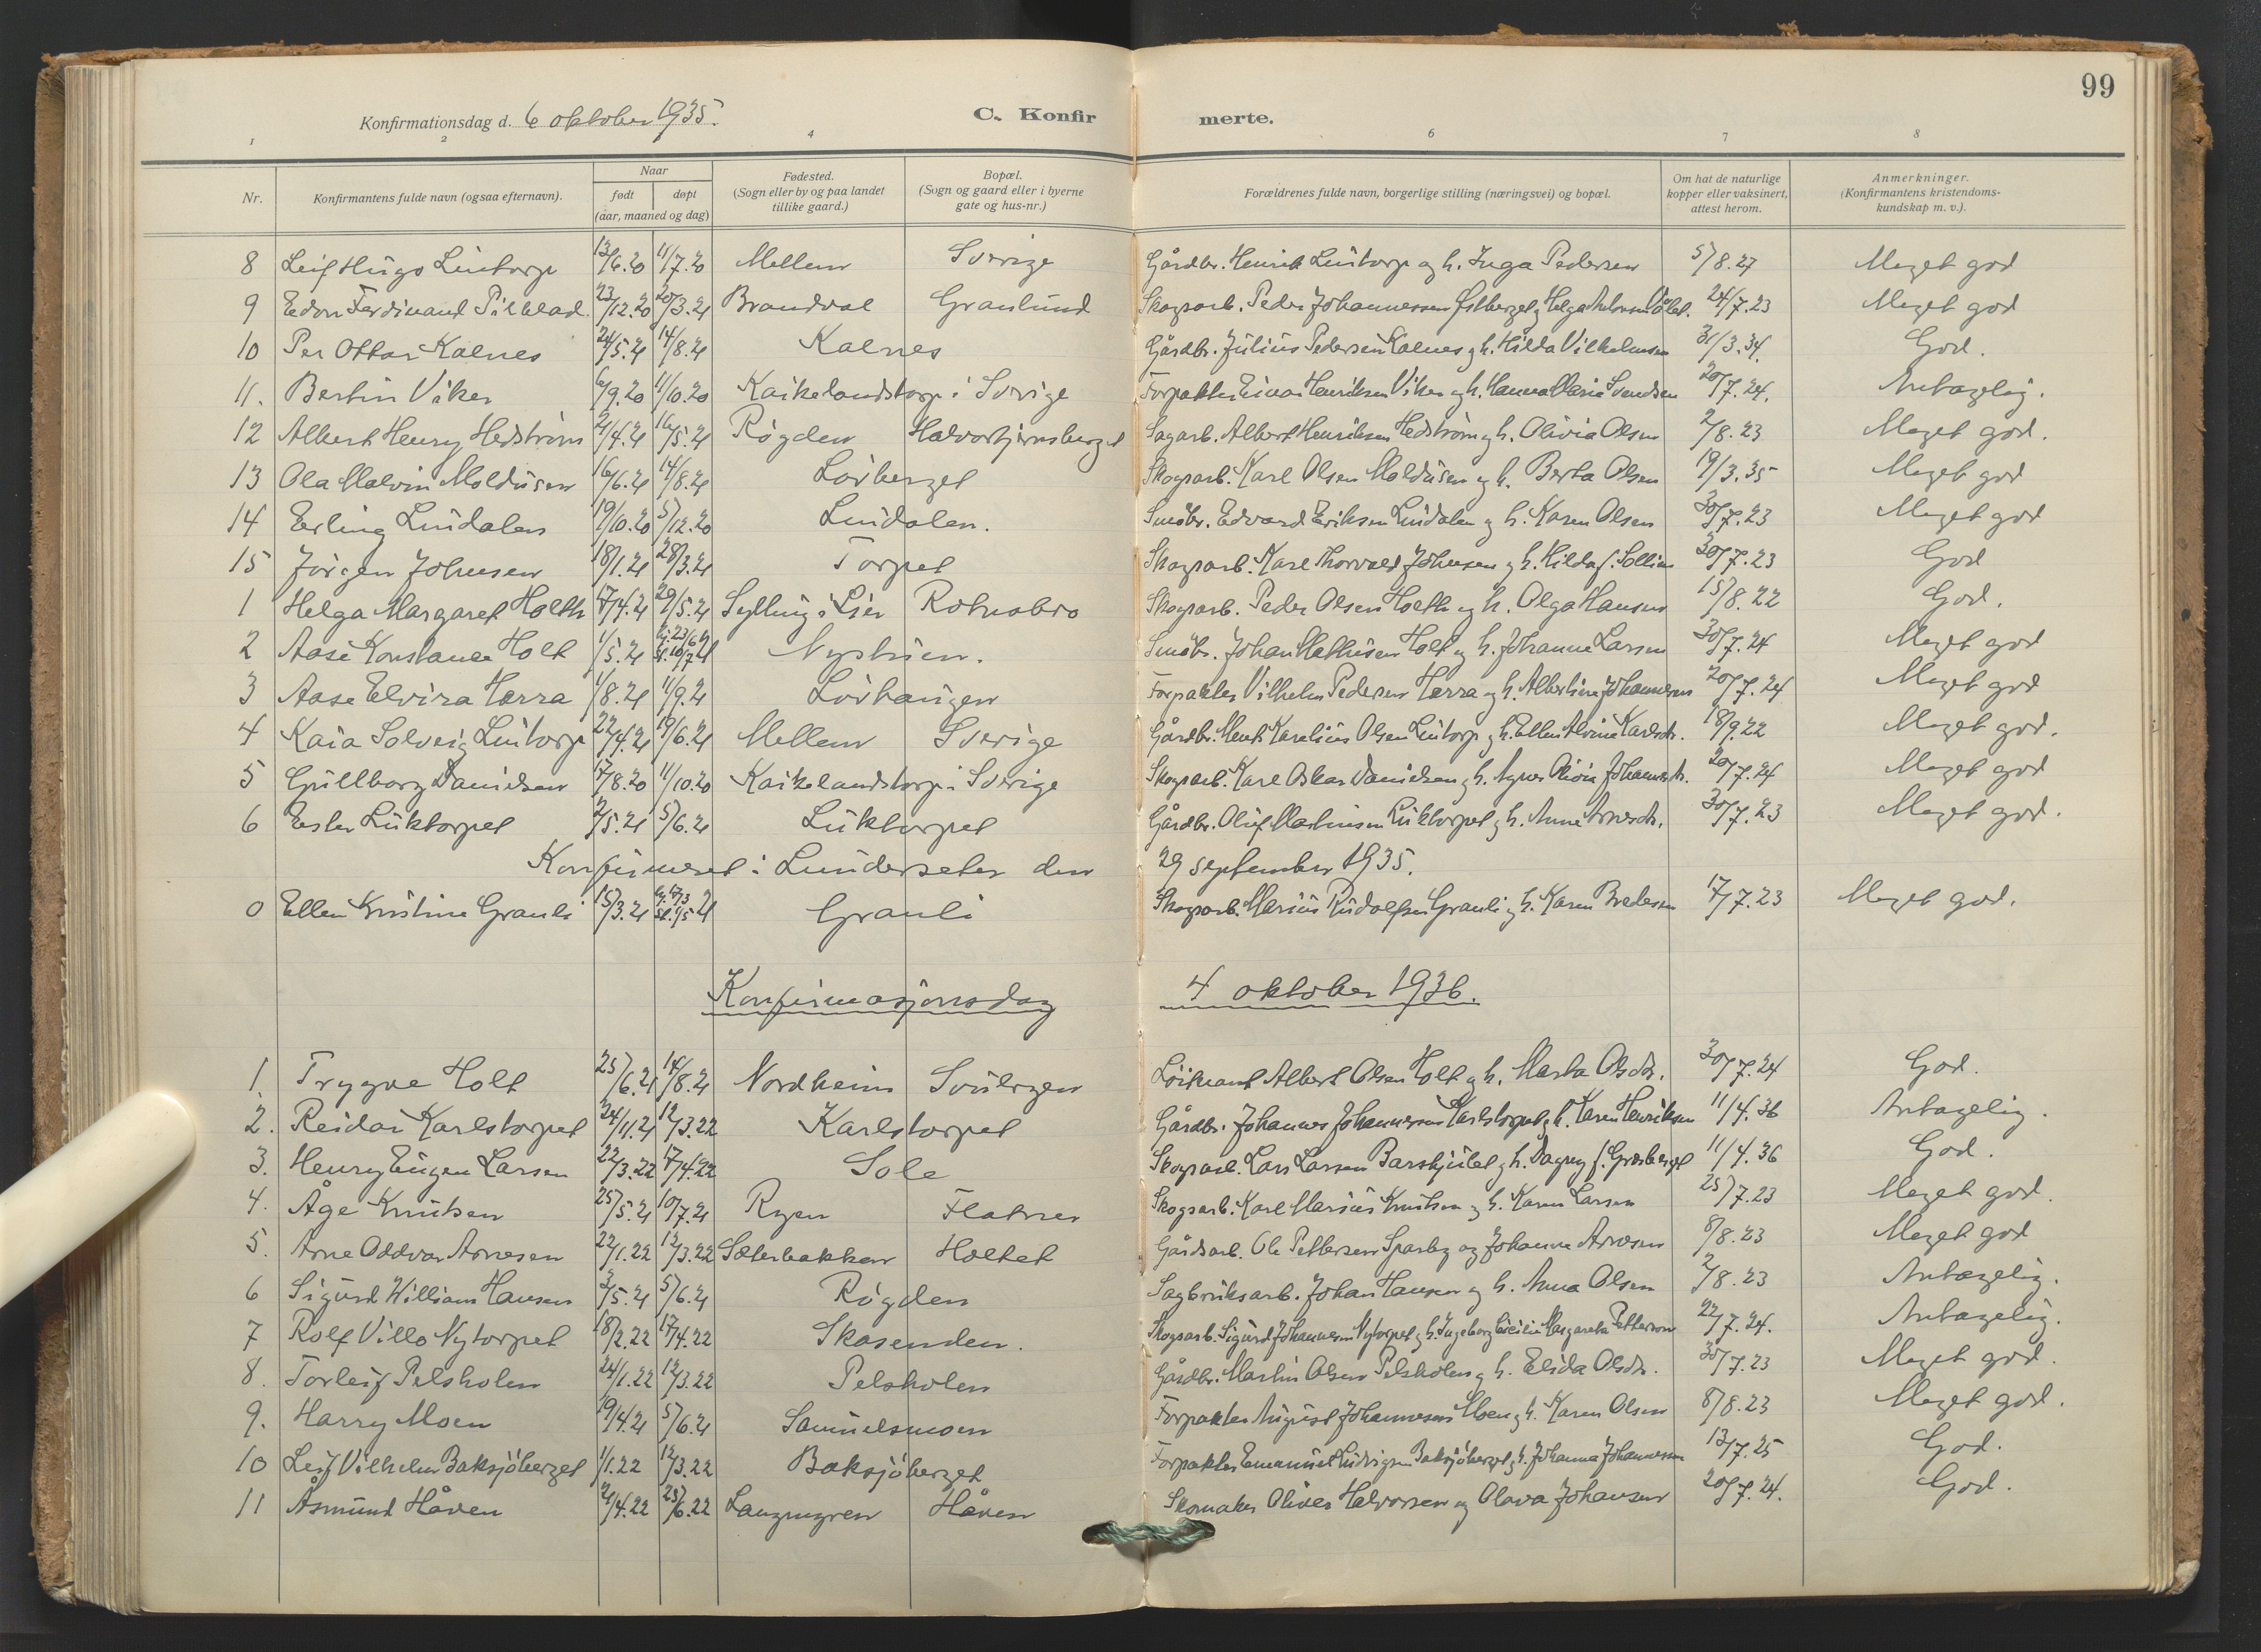 99
Konfirmationsdag d. 6 oktober 1935.
C. Konfirmerte.
1 2 4 6 7 8
Nr. Konfirmantens fulde navn (ogsaa efternavn). Naar født døpt (aar, maaned og dag) Fødested. (Sogn eller by og paa landet tillike gaard.) Bopæl. (Sogn og gaard eller i byerne gate og hus-nr.) Forældrenes fulde navn, borgerlige stilling (næringsvei) og bopæl. Om hat de naturlige kopper eller vaksinert, attest herom. Anmerkninger. (Konfirmantens kristendomskundskap m. v.).
8 Leif Hugo Lintorp 13/6.20 11/7.20 Mellem Sverige Gårdbr. Henrik Lintorp og h. Inga Pedersen 5/8.27 Meget god
9 Edon Ferdinand Pilblad 23/12.20 20/3.21 Brandval Granlund Skogsarb. Peder Johannessen Østberget og Helga 24/7.23 Meget god
10 Per Ottar Kalnes 24/5.21 14/8.21 Kalnes Gårdbr. Julius Pedersen Kalnes og h. Hilda Vilhelmsen 31/3.34. God.
11. Bertin Viker 6/9.20 11/10.20 Kaikelandstorp i Sverige Forpakter Einar Henriksen Viker og h. Hanna Maria Svendsen 20/7.24. Antagelig.
12 Albert Henry Hedstrøm 21/4.21 16/5.21 Røgden Halvortjernsberget Sagarb. Albert Henriksen Hedstrøm og h. Olivia Olsen 2/8.23 Meget god.
13 Ola Malvin Moldusen 16/6.21 14/8.21 Løvberget Skogsarb. Karl Olsen Moldusen og h. Berta Olsen 19/3.35 Meget god
14 Erling Lindalen 19/10.20 5/12.20 Lindalen. Småbr. Edvard Eriksen Lindalen og h. Karen Olsen 30/7.23 Meget god
15 Jørgen Johnsen 18/1.21 28/3.21 Torpet Skogsarb. Karl Thorvald Johnsen og h. Hilda f. Sollien 30/7.23 God
1 Helga Margaret Holth 17/4.21 29/5.21 Sylling i Lier Rotnabro Skogsarb. Peder Olsen Holth og h. Olga Hansen 15/8.22 God.
2 Aase Konstance Holt 1/5.21 hj. 23/6 21 st. 10/7 21 Nystuen. Småbr. Johan Mathisen Holt og h. Johanne Larsen 30/7.24 Meget god
3 Aase Elvira Harra 1/8.21 11/9.21 Løvhaugen Forpakter Vilhelm Pedersen Harra og h. Albertine Johannesen 20/7.24 Meget god
4 Kaia Solveig Lintorp 22/4.21 19/6.21 Mellem Sverige Gårdbr. Henrik Karelius Olsen Lintorp og h. Ellen Alvine Karlsdtr. 18/9.22 Meget god.
5 Gullborg Danielsen 17/8.20 11/10.20 Kaikelandstorp i Sverige Skogsarb. Karl Oskar Danielsen og h. Agnes Olivia Johannesdtr. 20/7.24 Meget god
6 Ester Luktorpet 2/5.21 5/6.21 Luktorpet Gårdbr. Oluf Martinsen Luktorpet og h. Anne Arnesdtr. 30/7.23 Meget god.
Konfirmeret i Lundersæter den 29 september 1935.
0 Ellen Kristine Granli 15/3.21 hj. 17/3 st. 1/5 21 Granli Skogsarb. Marius Rudolfsen Granli og h. Karen Bredesen 17/7.23 Meget god.
Konfirmasjonsdag 4 oktober 1936.
1. Trygve Holt 25/6.21 14/8.21 Nordheim Svullrya Løitnant Albert Olsen Holt og h. Marta Olsdtr. 30/7.24 God.
2. Reidar Karlstorpet 24/11.21 12/3.22 Karlstorpet Gårdbr. Johannes Johannesen Karlstorpet og h. Karen Henriksen 11/4.36 Antagelig.
3. Henry Eugen Larsen 22/3.22 17/4.22 Sole Skogsarb. Lars Larsen Barskjulet og h. Dagny f. Græsberget 11/4.36 God.
4. Åge Knutsen 25/5.21 10/7.21 Ryen Flatner Skogsarb. Karl Marius Knutsen og h. Karen Larsen 25/7.23 Meget god.
5. Arne Oddvar Arnesen 22/1.22 12/3.22 Sæterbakken Holtet Gårdsarb. Ole Pettersen Sparby og Johanne Arnesen 8/8.23 Meget god
6 Sigurd William Hansen 3/5.21 5/6.21 Røgden Sagbruksarb. Johan Hansen og h. Anna Olsen 2/8.23 Antagelig.
7 Rolf Villo Nytorpet 18/2.22 17/4.22 Skasenden. Skogsarb. Sigurd Johannesen Nytorpet og h. Ingeborg Cecilie Margareta Petterson 22/7.24. Antagelig.
8. Torleif Pelsholen 24/1.22 12/3.22 Pelsholen Gårdbr. Martin Olsen Pelsholen og h. Elida Olsdtr. 30/7.23 Meget god.
9. Harry Moen 19/4.21 5/6.21 Samuelsmoen Forpakter August Johannesen Moen og h. Karen Olsen 8/8.23 Meget god.
10 Leif Vilhelm Baksjøberget 1/1.22 12/3.22 Baksjøberget Forpakter Emanuel Ludvigsen Baksjøberget og h. Johanna Johannesen 13/7.25 God.
11 Åsmund Håven 21/4.22 25/6.22 Langmyren Håven Skomaker Oliver Halvorsen og Olava Johansen 20/7.24. God.